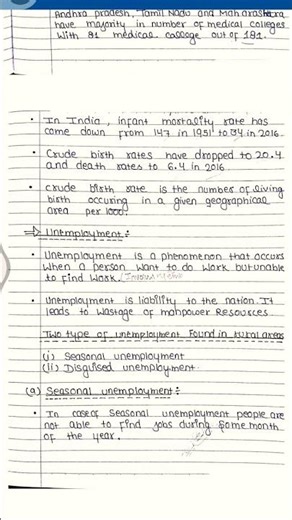 Andhra pradesh, Tamil Nadu and Maharastara
have majority in number of medical colleges
with 81 medical college out of 181.
• In India, infant mortality rate has
come down from 147 in 1951 to 34 in 2016.
• Crude birth rates have dropped to 20.4
and death rates to 6.4 in 2016
• Crude birth rate is the number of living
birth occuring in a given geographical
area per 1000.
⇒ Unemployment :-
• Unemployment is a phenomenon that occurs
when a person want to do work but unable
to find work.
• Unemployment is liability to the nation. It
leads to wastage of manpower Resources.
Two type of unemployment Found in rural areas
(i) Seasonal unemployment
(ii) Disguised unemployment
(a) Seasonal unemployment :-
• In case of Seasonal unemployment people are
not able to find jobs during some month
of the year.